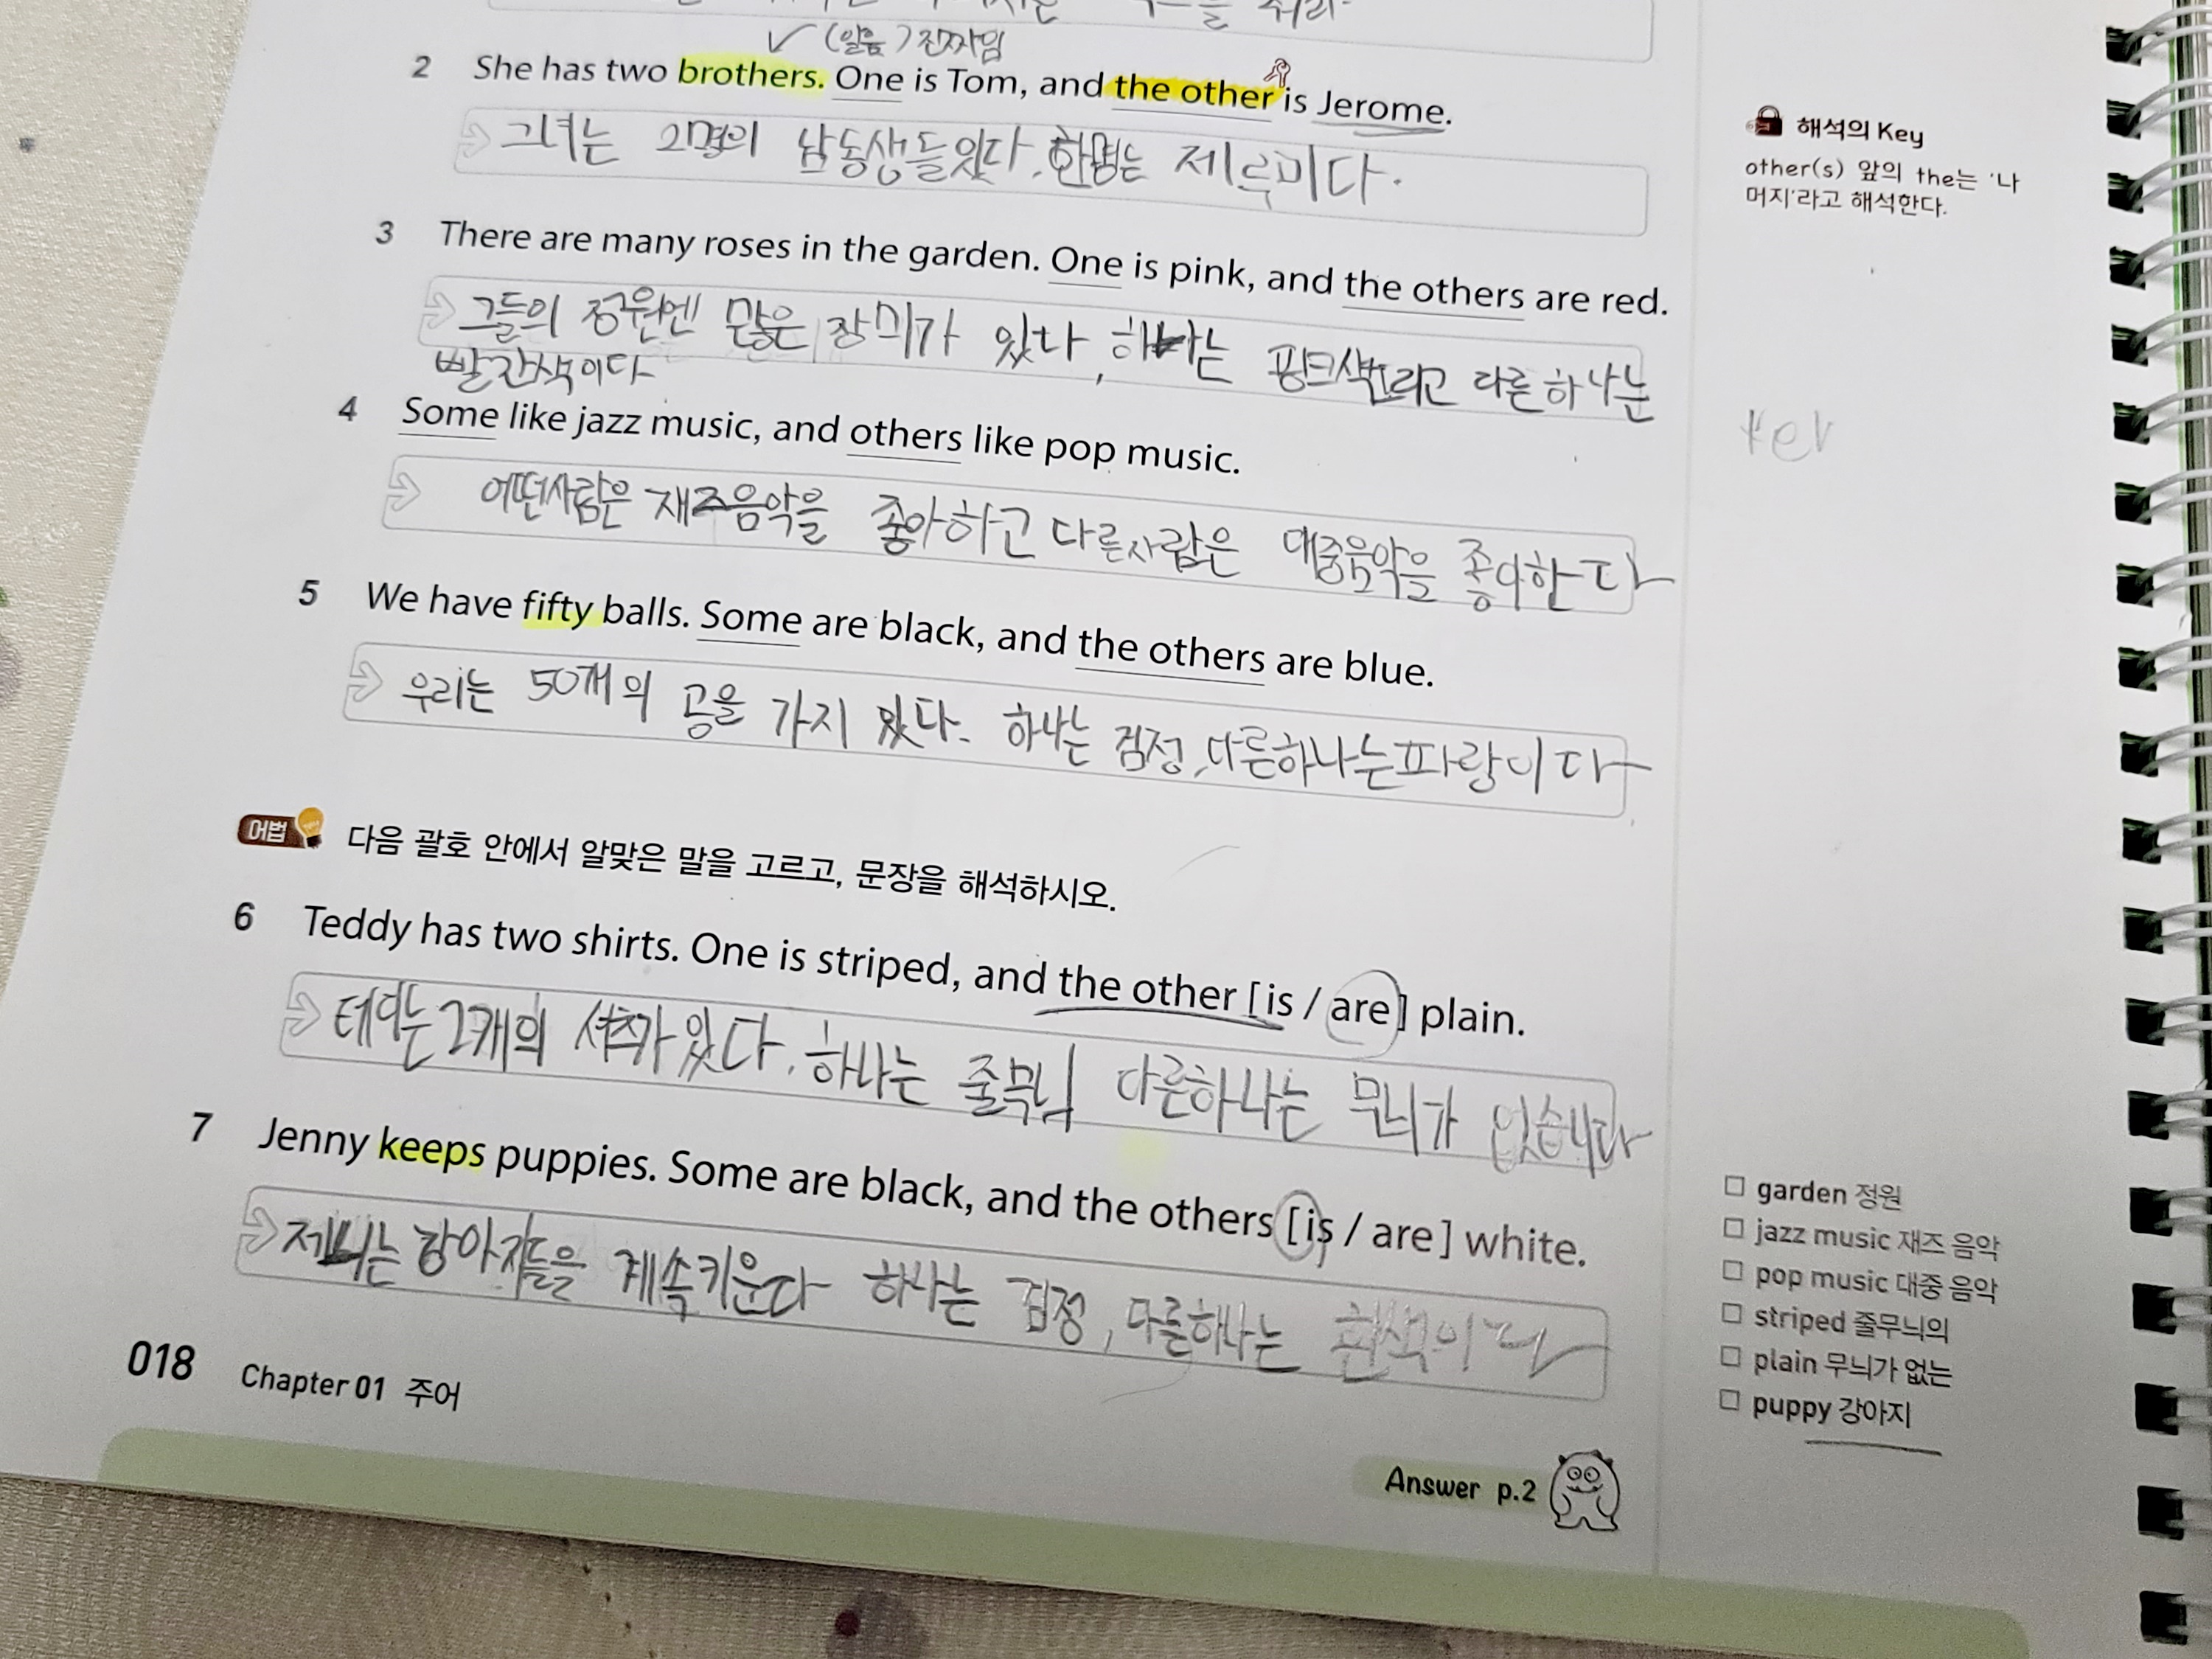 를
✓ (일음) 진짜임
2 She has two brothers. One is Tom, and the other is Jerome.
그녀는 2명의 남동생들있다. 한명는 제루미다.
해석의 Key
other(s) 앞의 the는 '나
머지'라고 해석한다.
3 There are many roses in the garden. One is pink, and the others are red.
그들의 정원엔 많은 장미가 있다, 하나는 핑크색 그리고 다른하나는
빨간색이다
4 Some like jazz music, and others like pop music.
어떤사람은 재즈음악을 좋아하고 다른사람은 대중음악을 좋아한다
5 We have fifty balls. Some are black, and the others are blue.
우리는 50개의 공을 가지 있다. 하나는 검정, 다른하나는파랑이다
어법 다음 괄호 안에서 알맞은 말을 고르고, 문장을 해석하시오.
6 Teddy has two shirts. One is striped, and the other [is / are] plain.
테디는 2개의 셔츠가 있다. 하나는 줄무늬 다른하나는 무늬가 없습니다
7 Jenny keeps puppies. Some are black, and the others [is / are] white.
제니는 강아지들을 계속키운다 하나는 검정, 다른하나는 흰색이다
□ garden 정원
□ jazz music 재즈 음악
□ pop music 대중 음악
□ striped 줄무늬의
□ plain 무늬가 없는
□ puppy 강아지
018 Chapter 01 주어
Answer p.2